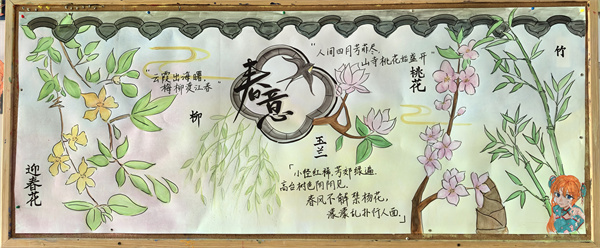 迎春花
"云霞出海曙
梅柳渡江春"
柳
春意
"人间四月芳菲尽,
山寺桃花始盛开
玉兰
「小径红稀,芳郊绿遍,
高台树色阴阴见。
春风不解禁杨花,
濛濛乱扑行人面。」
桃花
竹